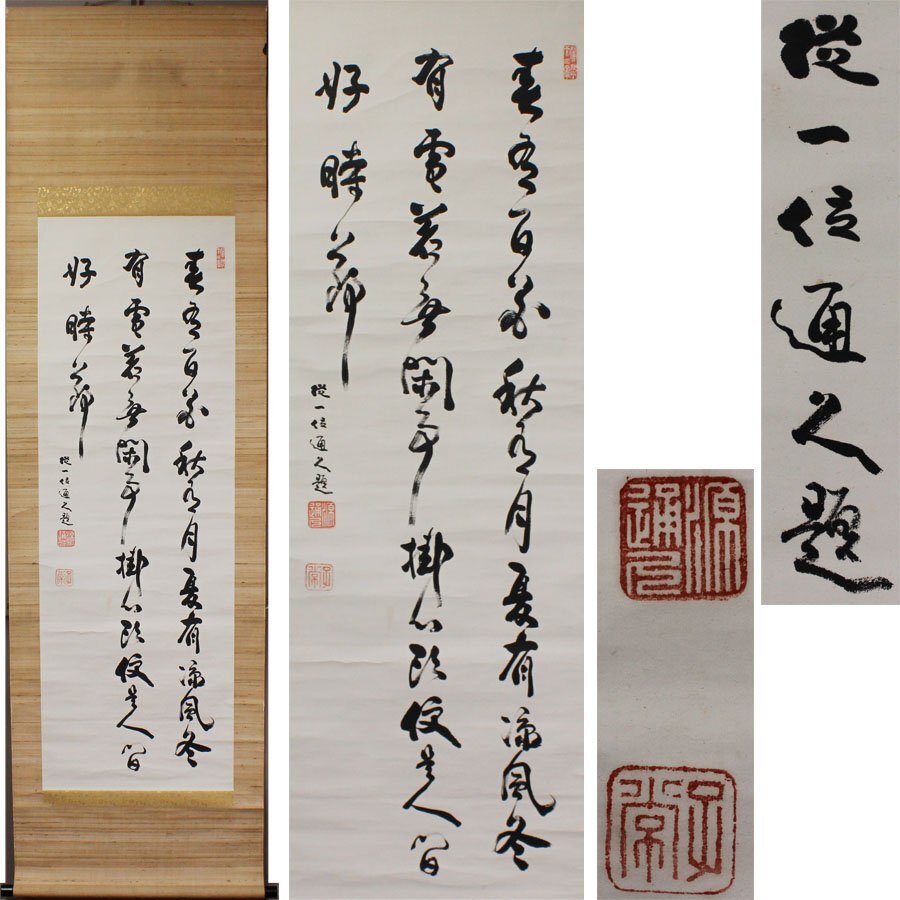 春有百花秋有月夏有涼風冬
有雪若無閑事掛心頭便是人間
好時節
從一位通久題
春有百花秋有月夏有涼風冬
有雪若無閑事掛心頭便是人間
好時節
從一位通久題
從一位通久題
源通久